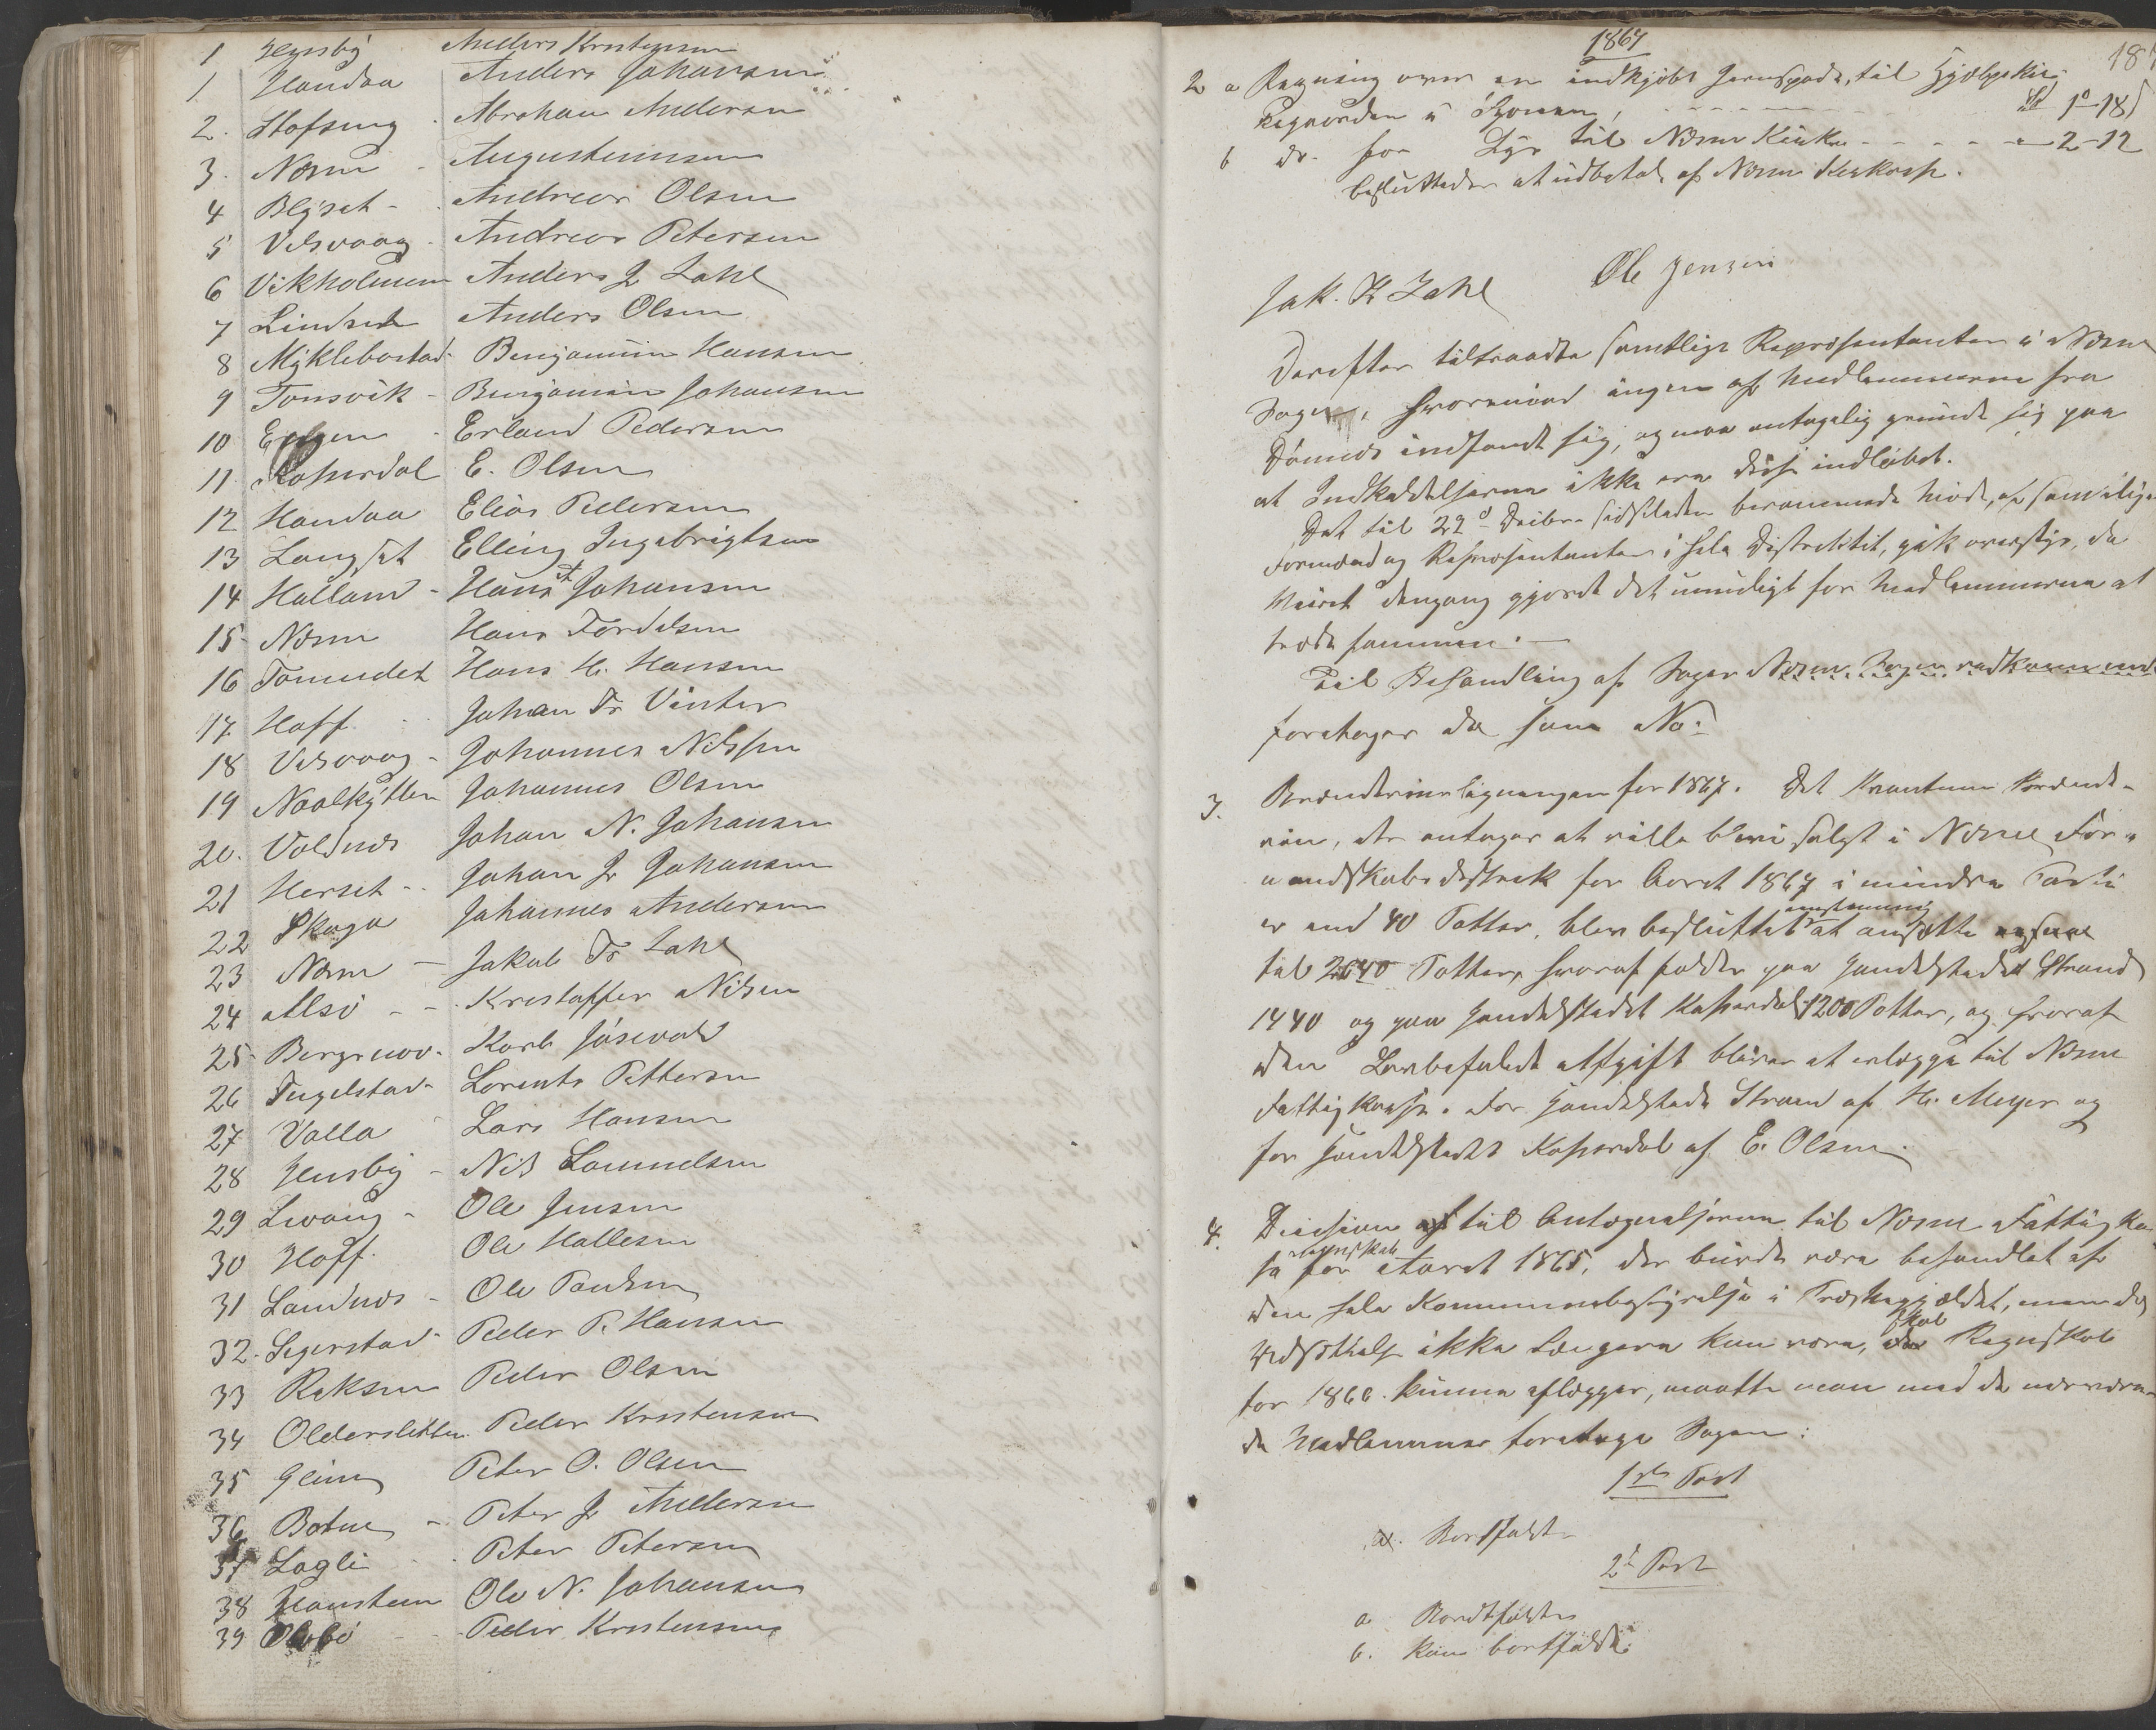 1 Husby Anders Kristensen
1 Handaa Anders Johansen
2. Stofseng Abraham Andersen
3. Nesne Augustinusen
4 Blejset - Andreas Olsen
5 Vilsvaag - Andreas Petersen
6 Vikholmen Anders J. Zahl
7 Lindset Anders Olsen
8 Myklebostad - Benjamin Hansen
9 Tonsvik - Benjamin Johansen
10 Erland Pedersen
11 Kopardal E. Olsen
12 Handaa Elias Pedersen
13 Langset Elling Ingebrigtsen
14 Halland - Hans Johansen
15 Nesne Hans Tordalsen
16 Tomudet Hans H. Hansen
17 Hoff - Johan Fr Vinter
18 Vilsvaag - Johannes Nilssen
19 Naalkytten Johannes Olsen
20. Valdnes Johan N. Johansen
21 Herset - Johan J. Johansen
22 Skaga Johannes Andersen
23 Nesne - Jakob Fr Zahl
24 Alsø - - Kristoffer Nilsen
25 - Bergsnov - Karl
26 Tugelstad - Lorents Pettersen
27 Valla - Lars Hansen
28 Husby - Nils Samuelsen
29 Levang - Ole Jensen
30 Hoff - Ole Hallesen
31 Landnes - Ole Paulsen
32 - Segerstad - Peder P. Hansen
33 Reksen Peder Olsen
34 Oldersletten - Peder Kristensen
35 Glein Peter O. Olsen
36 Botne - Peter J. Andersen
37 Lagli - Peter Petersen
38 Haustein Ole N. Johansen
39 - Peder Kristensen
1867
2 a Regning over en indkjøbt Jernspade, til Hjælpekir-
kegaarden i Zonen, - - - 1 - 18
b do. for Lys til Nesne Kirke - - - - 2 - 12
besluttedes at udbetales af Nesne Kirkecasse.
Jak. Fr Zahl Ole Jensen
Derefter tiltraadte samtlige Repræsentanter i Nesne
Sogn, hvorimod ingen af Medlemmerne fra
Dønnes indfandt sig, og maa antagelig grunde sig paa
at Indkaldelserne ikke ere disse indløbet.
Det til 29d Decbr. sidstleden berammede Møde, af samtlige
Formænd og Repræsentanter i hele Distriktet, gik overstyr, da
Veiret dengang gjorde det umuligt for Medlemmerne at
træde sammen. -
Til Behandling af Sager Nesne Sogn vedkommende
foretages da som No.
3. Brændeviinsligningen for 1867. Det Kvantum Brænde-
vin, der antages at ville blive solgt i Nesne For-
mandskabsdistrikt for Aaret 1867 i mindre Parti
er end 40 Potter, blev besluttet enstemmig at ansætte
til 2640 Potter, hvoraf falder paa Handelstedet Strand
1440 og paa Handelstedet Kopardal 1200 Potter, og hvoraf
den Lovbefalede Afgift bliver at erlægge til Nesne
Fattigkasse. For Handelstedet Strand af H. Meyer og
for Handelstedet Kopardal af E. Olsen.
4. Decision til Antegnelserne til Nesne Fattigkas-
se regnskab for Aaret 1865, der burde være behandlet af
den hele Kommunebestyrelse i Præstegjældet, men da
Udsættelse ikke længere kan være, skal Regnskab
for 1866 kunne aflægges, maatte man med de nærværen-
de Medlemmer foretage Sagen:
1ste Post
a. Bortfalder
2d Post
a Bortfalder
b. kan bortfalde.